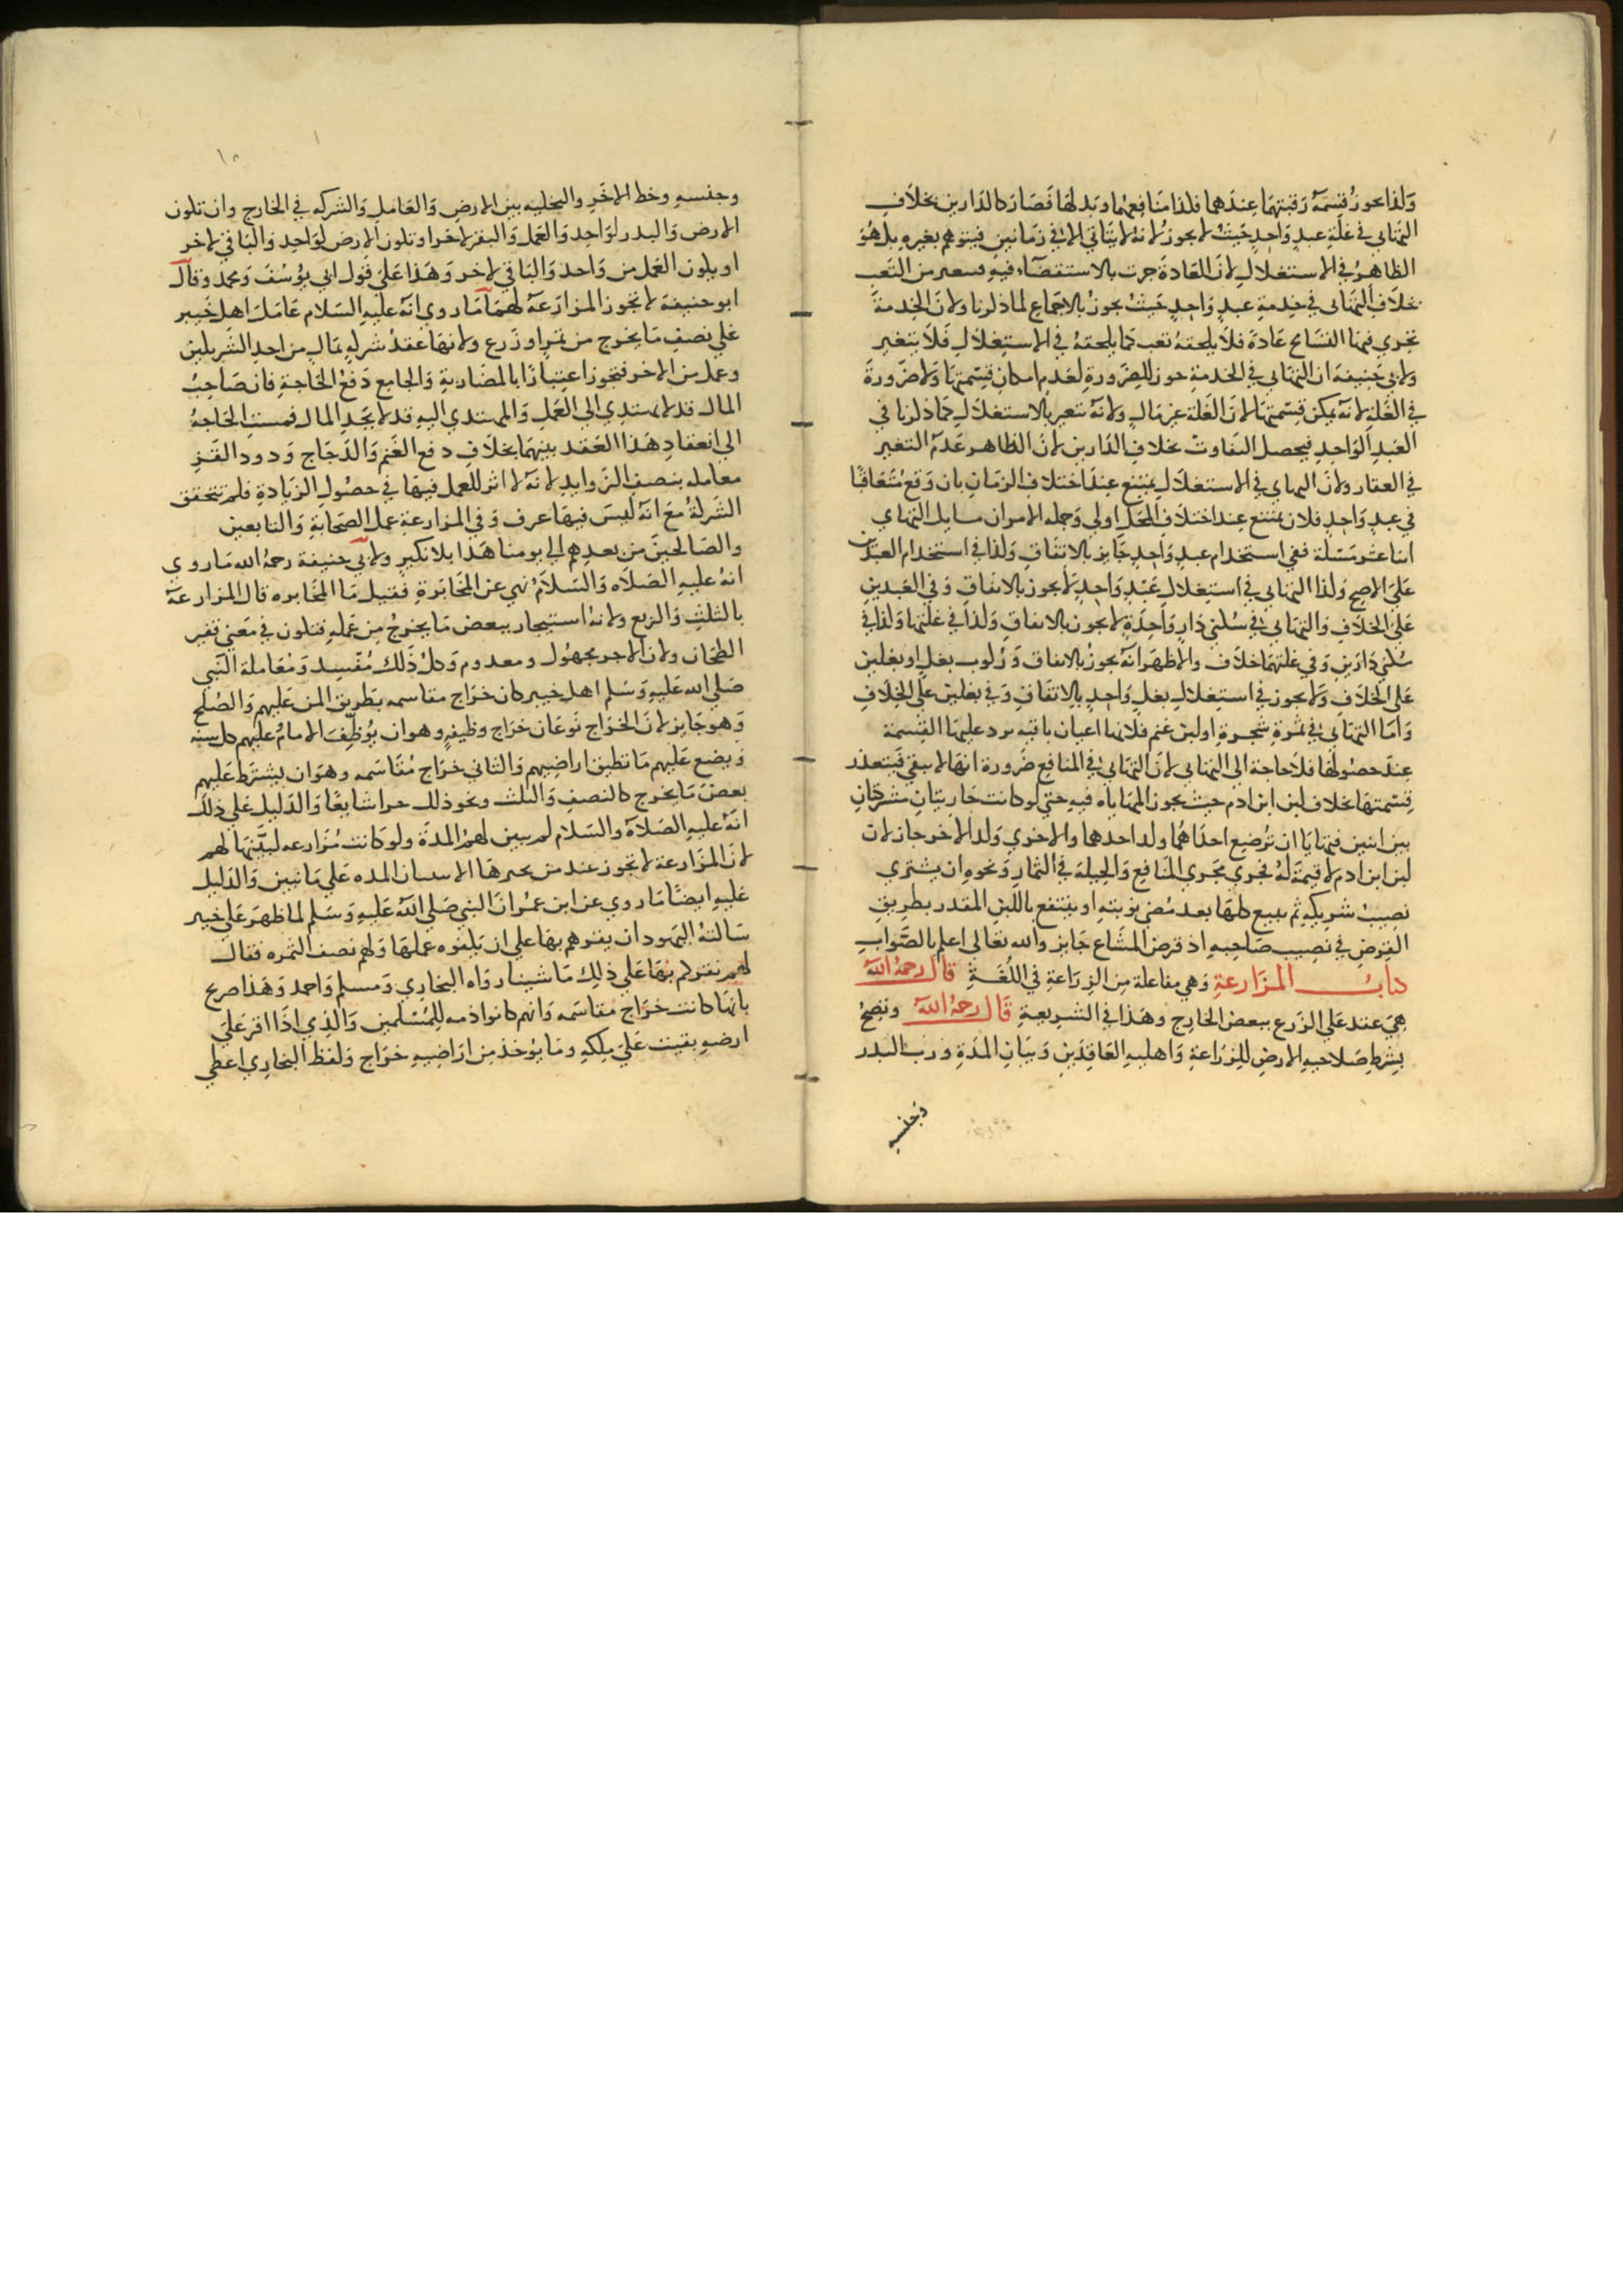 ولذا يجوز قسمة رقبتهما عندهما فلذا منافعهما وبدلها فصار كالدارين بخلاف
التهايي في غلة عبد واحد حيث لا يجوز لانه لا يتاتي الا في زمانين فيتوهم بغيره بل هو
الظاهر في الاستغلال لان العادة جرت بالاستقصاء فيه فيتغير من التعب
بخلاف التهايي في خدمة عبد واحد حيث يجوز بالاجماع لما ذكرنا ولان الخدمة
تجري فيها التسامح عادة فلا يلحقه تعب كما يلحقه في الاستغلال فلا يتغير
ولابي حنيفة ان التهايي في الخدمة جوز للضرورة لعدم امكان قسمتها ولا ضرورة
في الغلة لانه يمكن قسمتها لان الغلة عين مال ولانه تتغير بالاستغلال كما ذكرنا في
العبد الواحد فيحصل التفاوت بخلاف الدارين لان الظاهر عدم التغير
في العقار ولان التهاي في الاستغلال يمتنع عند اختلاف الزمان بان وقع متعاقبا
في عبد واحد فلان يمتنع عند اختلاف المحل اولي وجملة الامر ان مسايل التهاي
اثنا عشر مسئلة ففي استخدام عبد واحد جايز بالاتفاق وكذا في استخدام العبدين
علي الاصح وكذا التهايي في استغلال عبد واحد لا يجوز بالاتفاق وفي العبدين
علي الخلاف والتهايي في سكني دار واحدة لا يجوز بالاتفاق وكذا في غلتها وكذا في
سكني دارين وفي غلتهما خلاف والاظهر انه يجوز بالاتفاق وركوب بغل او بغلين
علي الخلاف ولا يجوز في استغلال بغل واحد بالاتفاق وفي بغلين علي الخلاف
واما التهايي في ثمرة شجرة او لبن غنم فلانها اعيان باقية يرد عليها القسمة
عند حصولها فلا حاجة الي التهايي لان التهايي في المنافع ضرورة انها لا تبقي فيتعذر
قسمتها بخلاف لبن ابن ادم حيث يجوز المهاياه فيه حتي لو كانت جاريتان مشتركتان
بين اثنين فتهايا ان ترضع احداهما ولد احدهما والاخري ولد الاخر جاز لان
لبن ابن ادم لا قيمة له فجري مجري المنافع والحيلة في الثمار ونحوه ان يشتري
نصيب شريكه ثم يبيع كلها بعد مضي نوبته او ينتفع باللبن المقدر بطريق
القرض في نصيب صاحبه اذ قرض المشاع جايز والله تعالى اعلم بالصواب
كتاب المزارعة وهي مفاعلة من الزراعة في اللغة قال رحمه الله
هي عقد علي الزرع ببعض الخارج وهذا في الشريعة قال رحمه الله وتصح
بشرط صلاحية الارض للزراعة واهلية العاقدين وبيان المدة ورب البدر
وجنسه
١٨
وجنسه وخط الاخر والتخليه بين الارض والعامل والشركه في الخارج وان تكون
الارض والبدر لواحد والعمل والبقر لاخر او تكون الارض لواحد والباقي لاخر
او يكون العمل من واحد والباقي لاخر وهذا علي قول ابي يوسف ومحمد وقال
ابو حنيفة لا تجوز المزارعة لهما ما روي انه عليه السلام عامل اهل خيبر
علي نصف ما يخرج من تمر او زرع ولانها عقد شركه بمال من احد الشريكين
وعمل من الاخر فتجوز اعتبارا بالمضاربة والجامع دفع الحاجة فان صاحب
المال قد لا يهتدي الي العمل والمهتدي اليه قد لا يجد المال فمست الحاجة
الي انعقاد هذا العقد بينهما بخلاف دفع الغنم والدجاج ودود القز
معامله بنصف الزوايد لانه لا اثر للعمل فيها في حصول الزيادة فلم تتحقق
الشركة مع انه ليس فيها عرف وفي المزارعة عمل الصحابة والتابعين
والصالحين من بعدهم الي يومنا هذا بلا نكير ولابي حنيفة رحمه الله ما روي
انه عليه الصلاه والسلام نهي عن المخابرة فقيل ما المخابره قال المزارعة
بالثلث والربع ولانه استيجار ببعض ما يخرج من عمله فتكون في معني قفيز
الطحان ولان الاجر مجهول ومعدوم وكل ذلك مفسد ومعاملة النبي
صلي الله عليه وسلم اهل خيبر كان خراج مقاسمه بطريق المن عليهم والصلح
وهو جايز لان الخراج نوعان خراج وظيفه وهو ان يوظف الامام عليهم كل سنه
ويضع عليهم ما تطيق اراضيهم والثاني خراج مقاسمه وهو ان يشترط عليهم
بعض ما يخرج كالنصف والثلث ونحو ذلك جزا شايعا والدليل علي ذلك
انه عليه الصلاة والسلام لم يبين لهم المدة ولو كانت مزارعه لبينها لهم
لان المزارعة لا تجوز عند من يجيزها الا ببيان المده علي ما نبين والدليل
عليه ايضا ما روي عن ابن عمر ان النبي صلي الله عليه وسلم لما ظهر علي خيبر
سالته اليهود ان يقرهم بها علي ان يكفوه عملها ولهم نصف الثمره فقال
لهم نقركم بها علي ذلك ما شينا رواه البخاري ومسلم واحمد وهذا صريح
بانها كانت خراج مقاسمه وانهم كانوا ذمه للمسلمين والذي اذا اقر علي
ارضه بقيت علي ملكه وما يوخذ من اراضيه خراج ولفظ البخاري اعطي